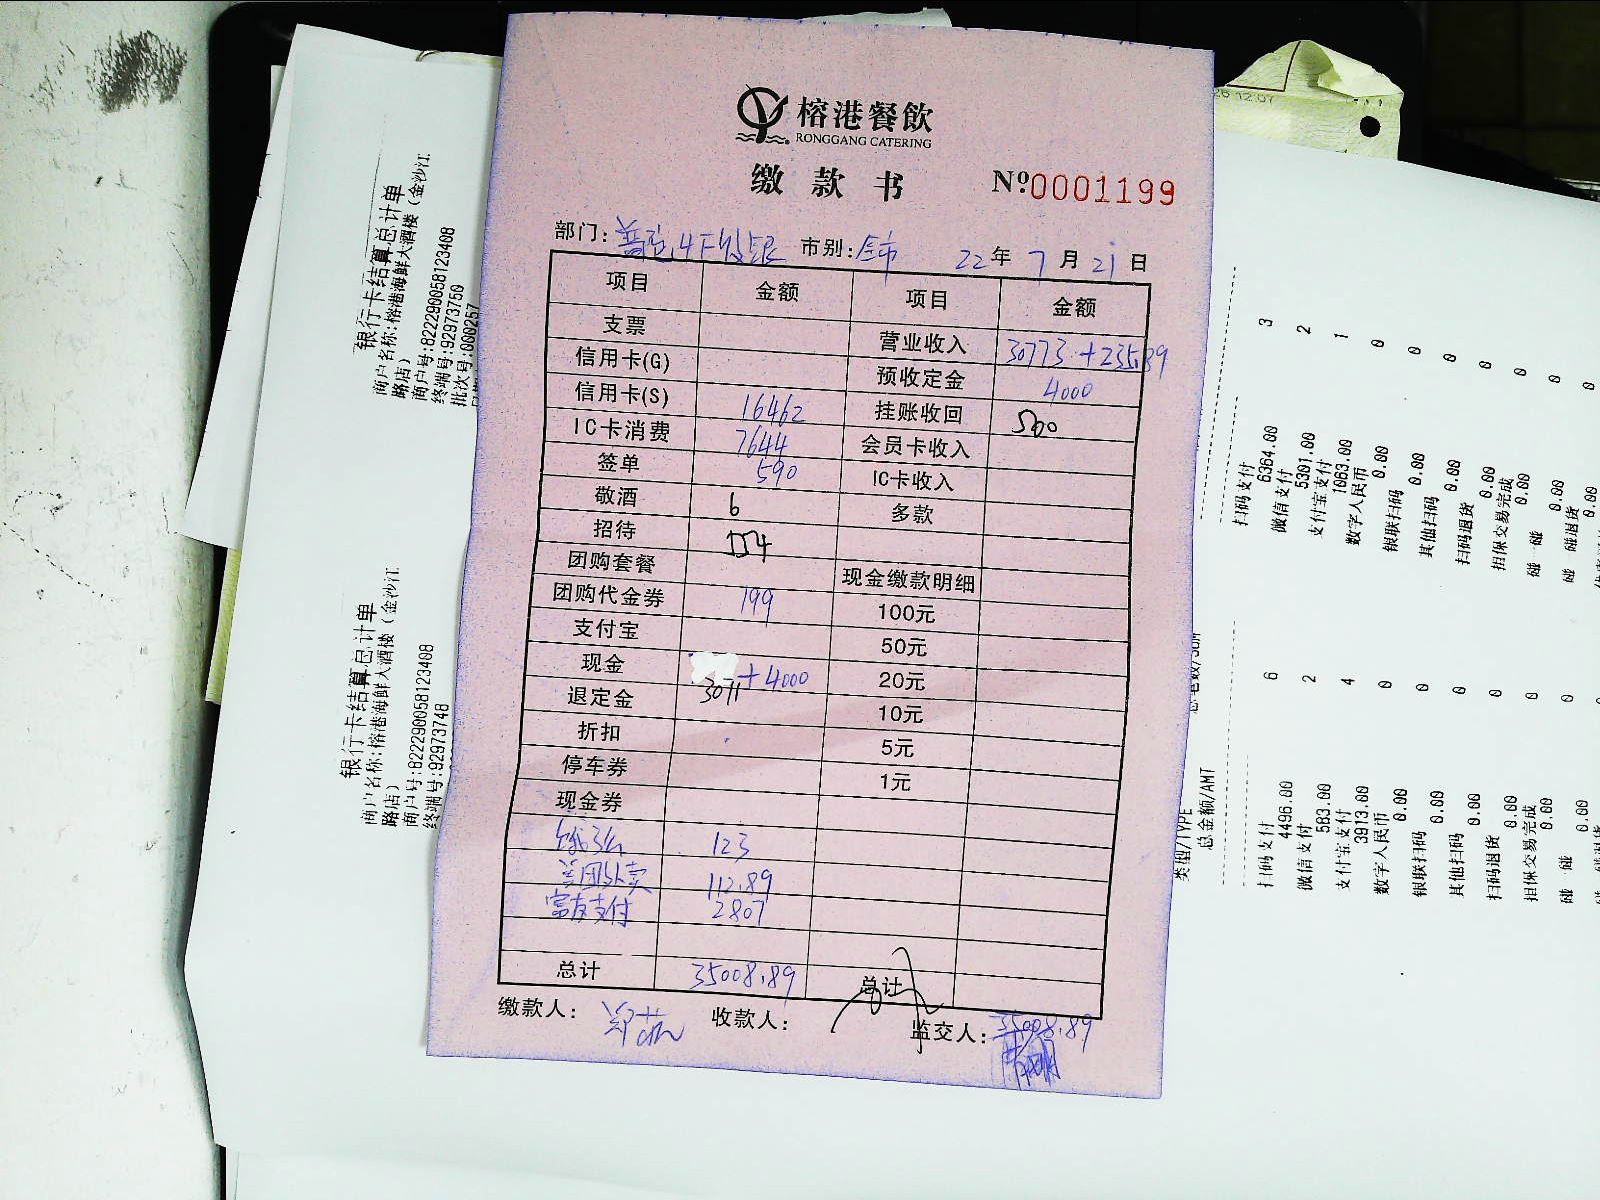 榕港餐飲
RONGGANG CATERING
缴款书
№0001199
部门: 市别: 22年7月21日
项目 金额 项目 金额
支票 营业收入 30773+235.89
信用卡(G) 预收定金 4000
信用卡(S) 16462 挂账收回 500
IC卡消费 7644 会员卡收入
签单 590 IC卡收入
敬酒 6 多款
招待
团购套餐 现金缴款明细
团购代金券 199 100元
支付宝 50元
现金 3011+4000 20元
退定金 10元
折扣 5元
停车券 1元
现金券
饿了么 123
美团外卖 112.89
富友支付 2807
总计 35008.89 总计
35008.89
缴款人: 收款人: 监交人:
银行卡结算总计单
商户名称:榕港海鲜大酒楼(金沙江
路店)
商户号:822290058123408
终端号:92973750
批次号:000257
银行卡结算总计单
商户名称:榕港海鲜大酒楼(金沙江
路店)
商户号:822290058123408
终端号:92973748
扫码支付 3
6364.00
微信支付 2
5301.00
支付宝支付 1
1063.00
数字人民币 0
0.00
银联扫码 0
0.00
其他扫码 0
0.00
扫码退货 0
0.00
担保交易完成 0
0.00
碰一碰 0
0.00
碰一碰退货 0
0.00
类型/TYPE
总金额/AMT
扫码支付 6
4496.00
微信支付 2
583.00
支付宝支付 4
3913.00
数字人民币 0
0.00
银联扫码 0
0.00
其他扫码 0
0.00
扫码退货 0
0.00
担保交易完成 0
0.00
碰一碰 0
0.00
12:07